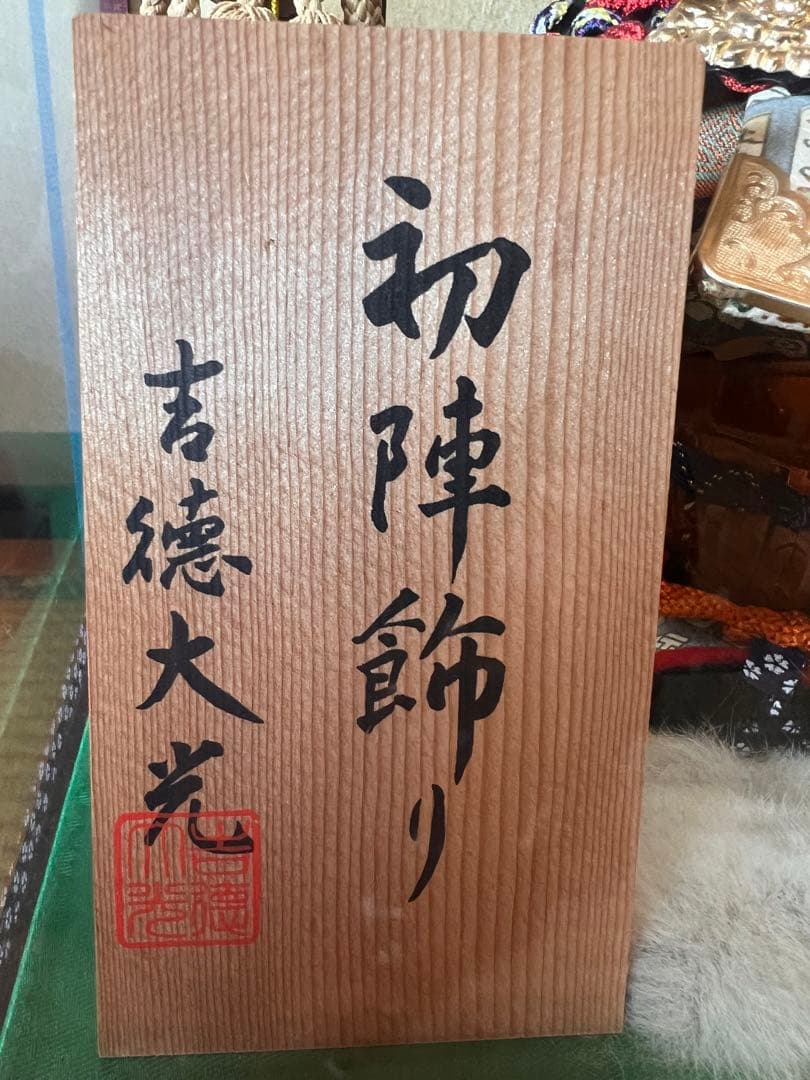 初陣飾り
吉徳大光
吉徳大光